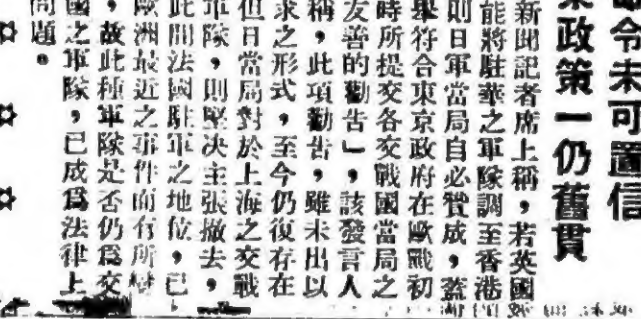 令未可置信
政策一仍舊貫
新聞記者席上稱，若英國
能將駐華之軍隊調至香港
則日軍當局自必贊成，蓋
舉符合東京政府在歐戰初
時所提交各交戰國當局之
友善的勸告」，該發言人
稱，此項勸告，雖未出以
求之形式，至今仍復存在
但日常局對於上海之交戰
軍隊，則堅决主張撤去，
此間法國駐軍之地位，已
歐洲最近之事件而有所
，故此種軍隊是否仍爲交
國之軍隊，已成爲法律上
問題。